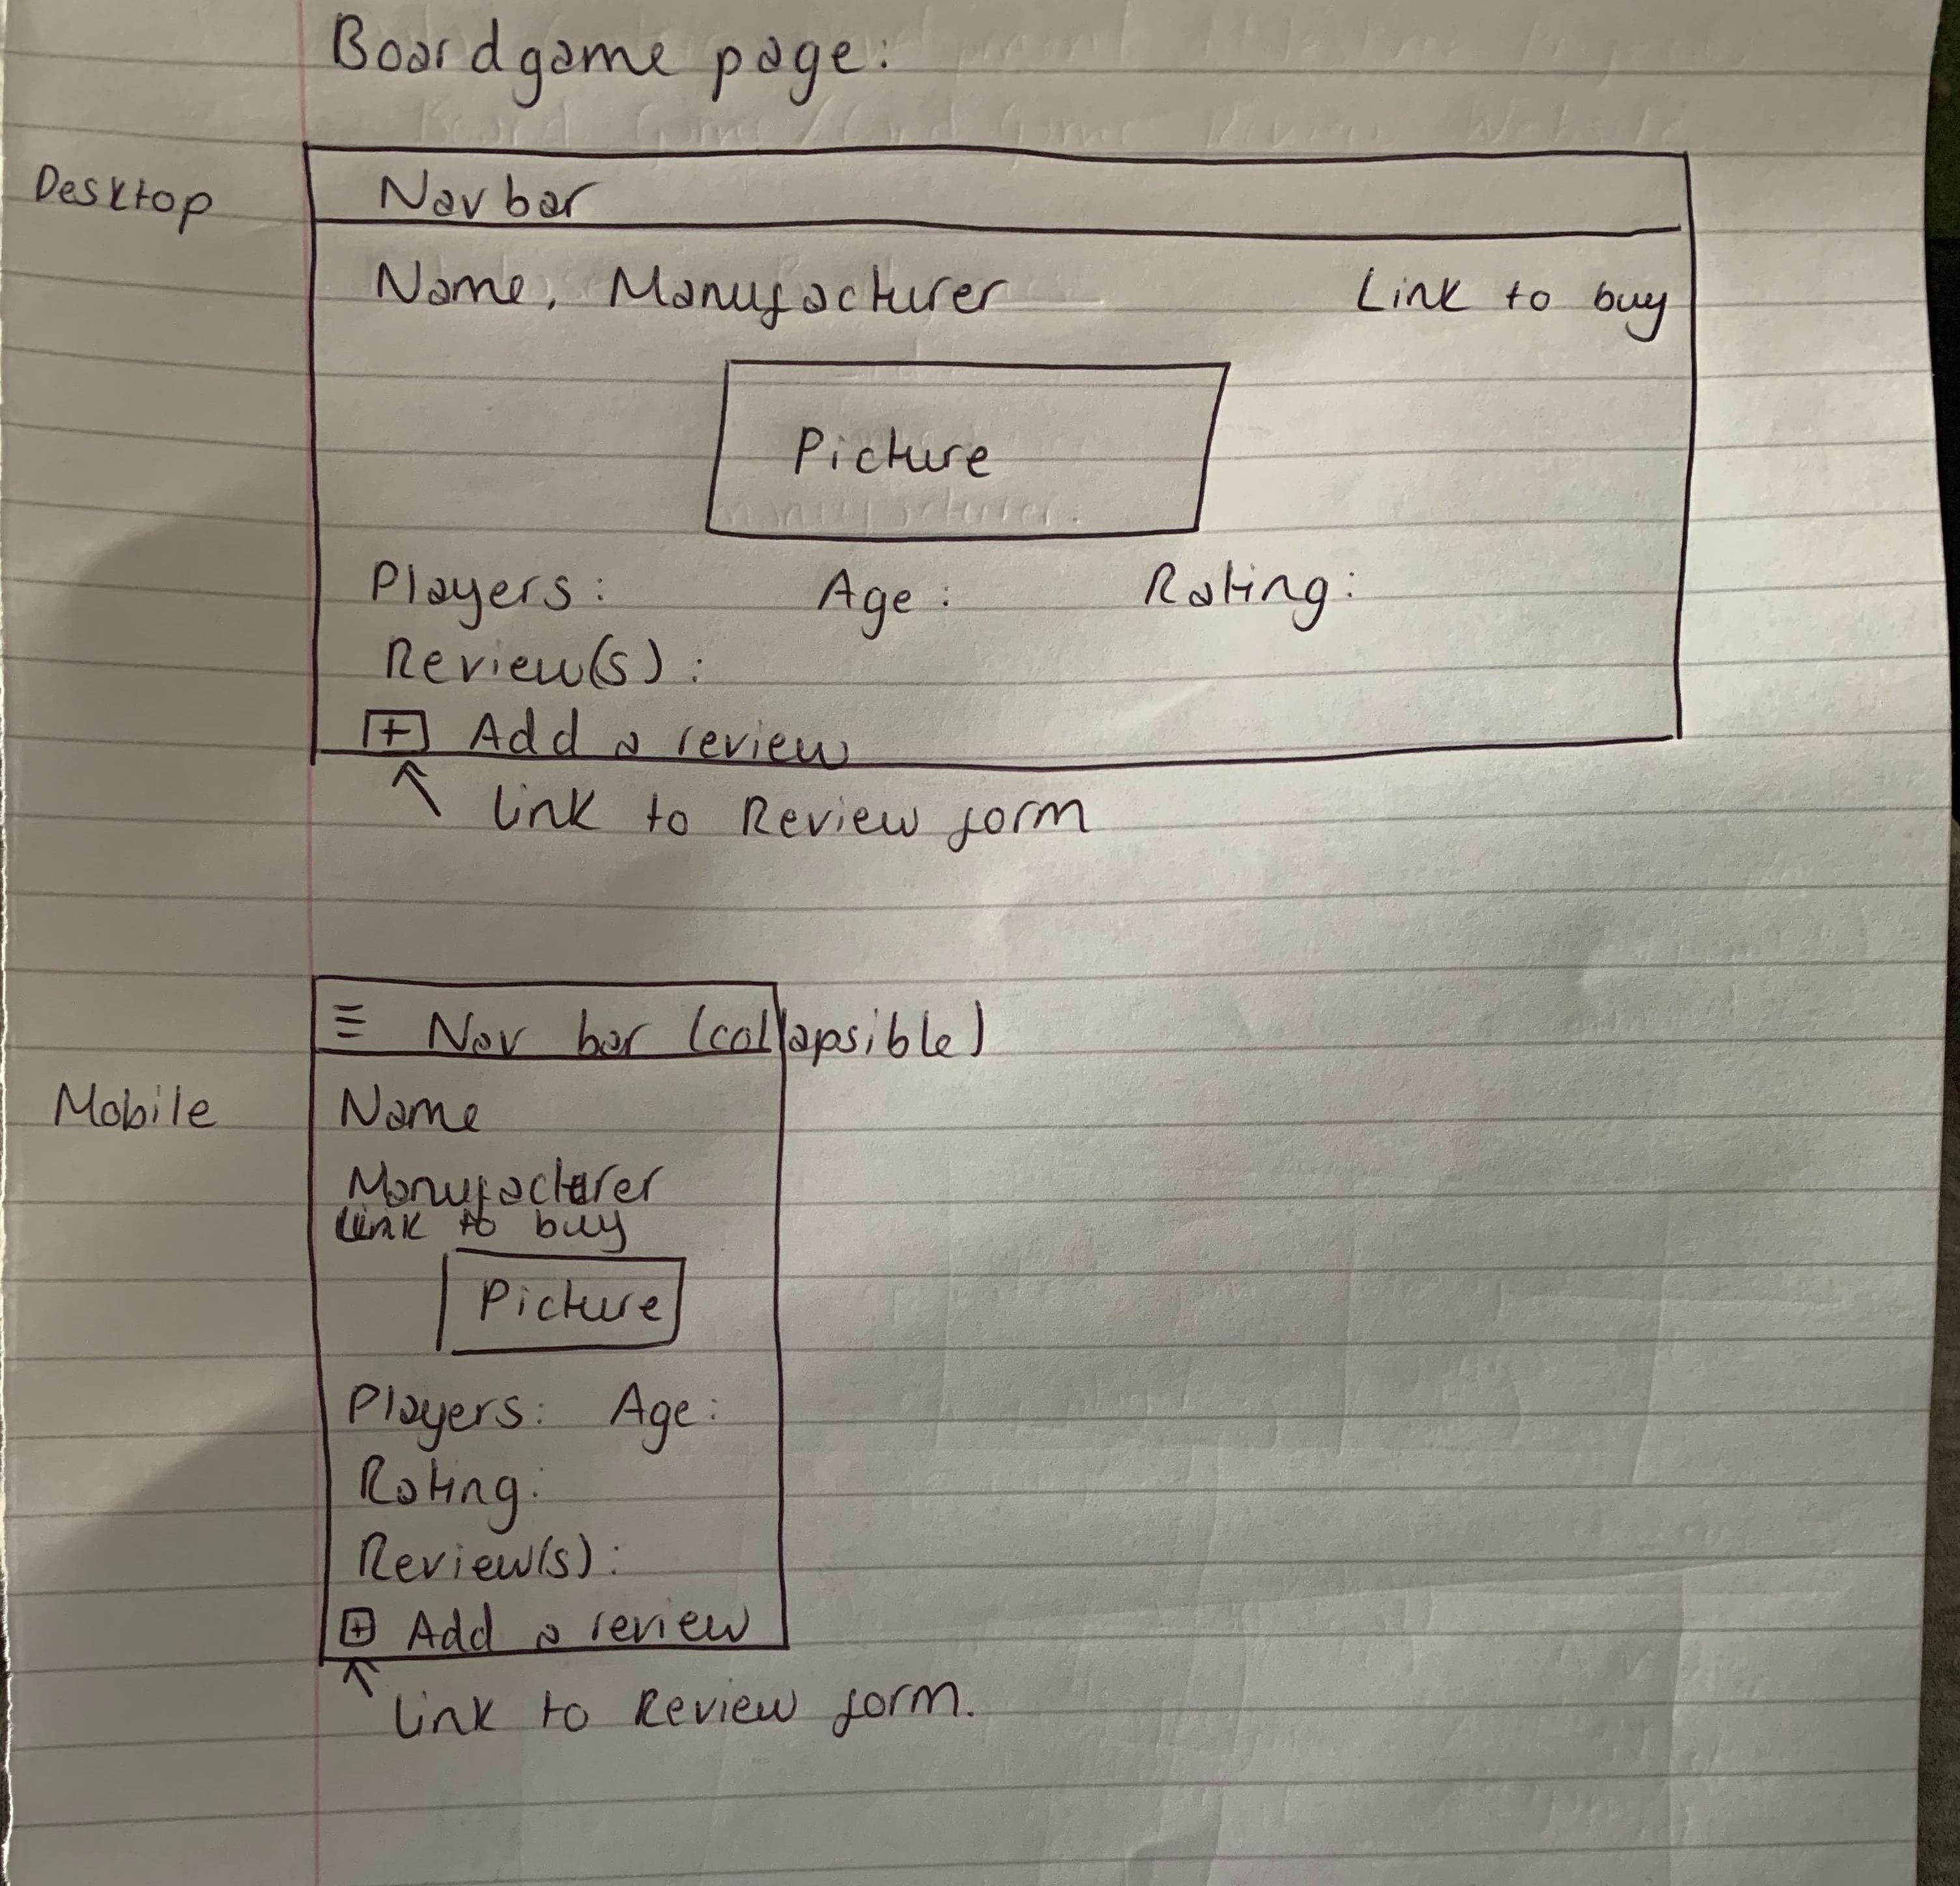 Boardgame page:
Desktop
Nav bar
Name, Manufacturer Link to buy
Picture
Players: Age: Rating:
Review(s):
+ Add a review
Link to Review form
Mobile
Nav bar (collapsible)
Name
Manufacturer
Link to buy
Picture
Players: Age:
Rating:
Review(s):
+ Add a review
Link to Review form.